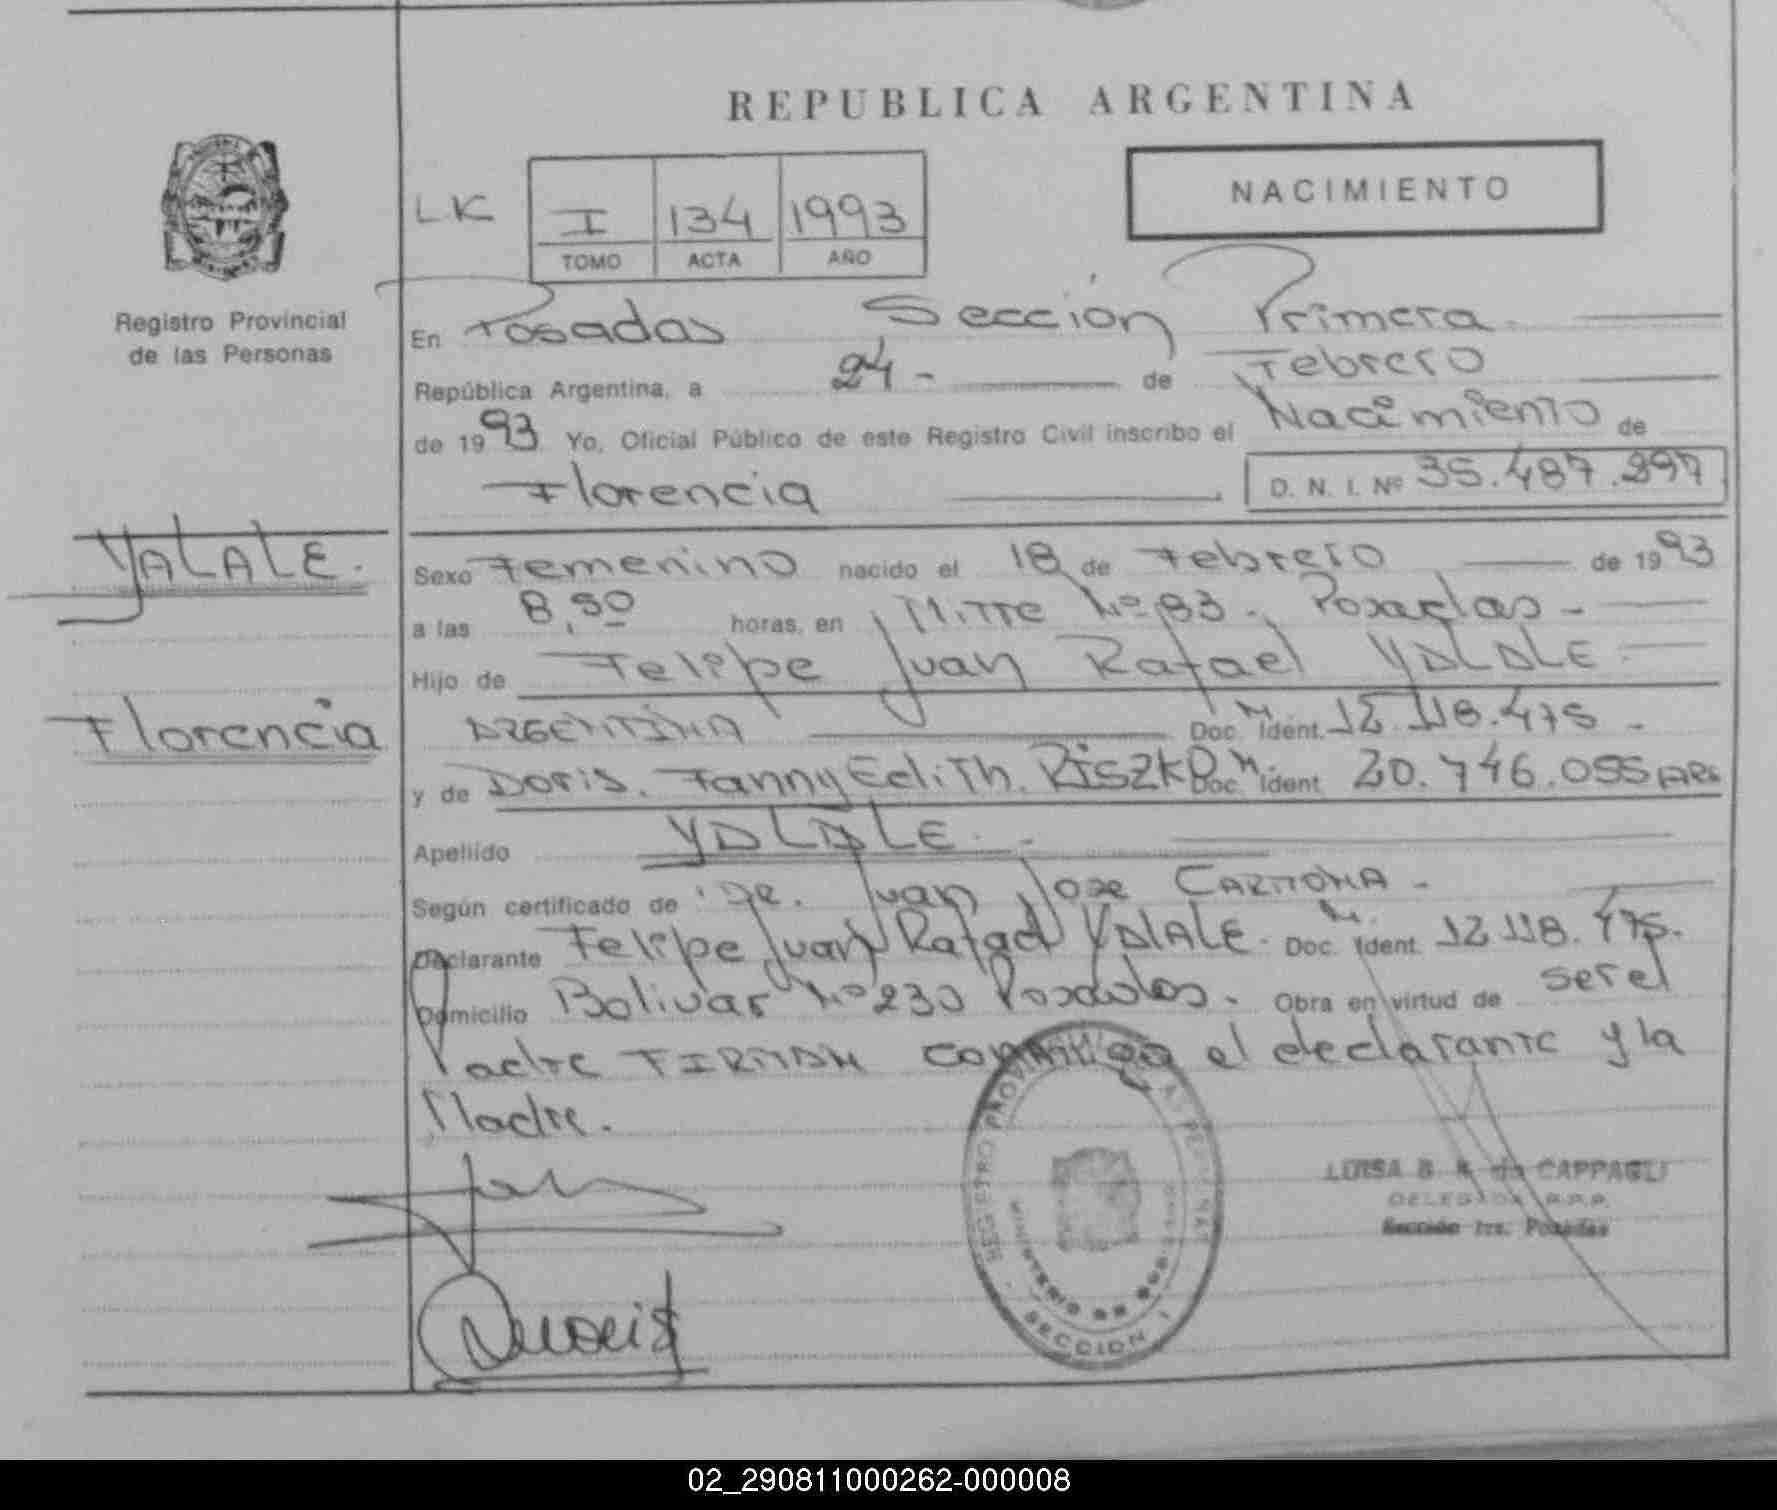 REPUBLICA ARGENTINA
NACIMIENTO
LK I 134 1993
TOMO ACTA AÑO
Registro Provincial
de las Personas
En Posadas Sección Primera
República Argentina, a 24 - de Febrero
de 1993 Yo, Oficial Público de este Registro Civil inscribo el Nacimiento de
Florencia D. N. I. Nº 35.487.297
YALALE.
Florencia
Sexo Femenino nacido el 18 de Febrero de 1993
a las 8,50 horas, en Mitre Nº 83. Posadas -
Hijo de Felipe Juan Rafael YALALE
ARGENTINA Doc. M Ident. 12.118.475 -
y de Doris. Fanny Edith. Doc. M Ident 20.746.055 ARG
Apellido YALALE. -
Según certificado de Dr. Juan Jose CARMONA -
Declarante Felipe Juan Rafael YALALE. Doc. M. Ident. 12.118.475.
Domicilio Bolivar Nº 230 Posadas. Obra en virtud de ser el
Padre FIRMAN conmigo el declarante y la
Madre.
REGISTRO PROVINCIAL DE LAS PERSONAS
MINISTERIO DE GOB
SECCION 1
LUISA B. de CAPPAGLI
DELEGADA R.P.P.
Sección 1ra. Posadas
02_290811000262-000008